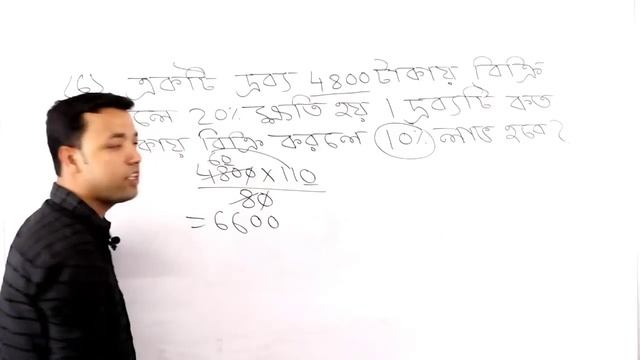 (6) একটি দ্রব্য 4800 টাকায় বিক্রি
লে 20% ক্ষতি হয় । দ্রব্যটি কত
কায় বিক্রি করলে 10% লাভ হবে?
60
4800 x 110
80
= 6600